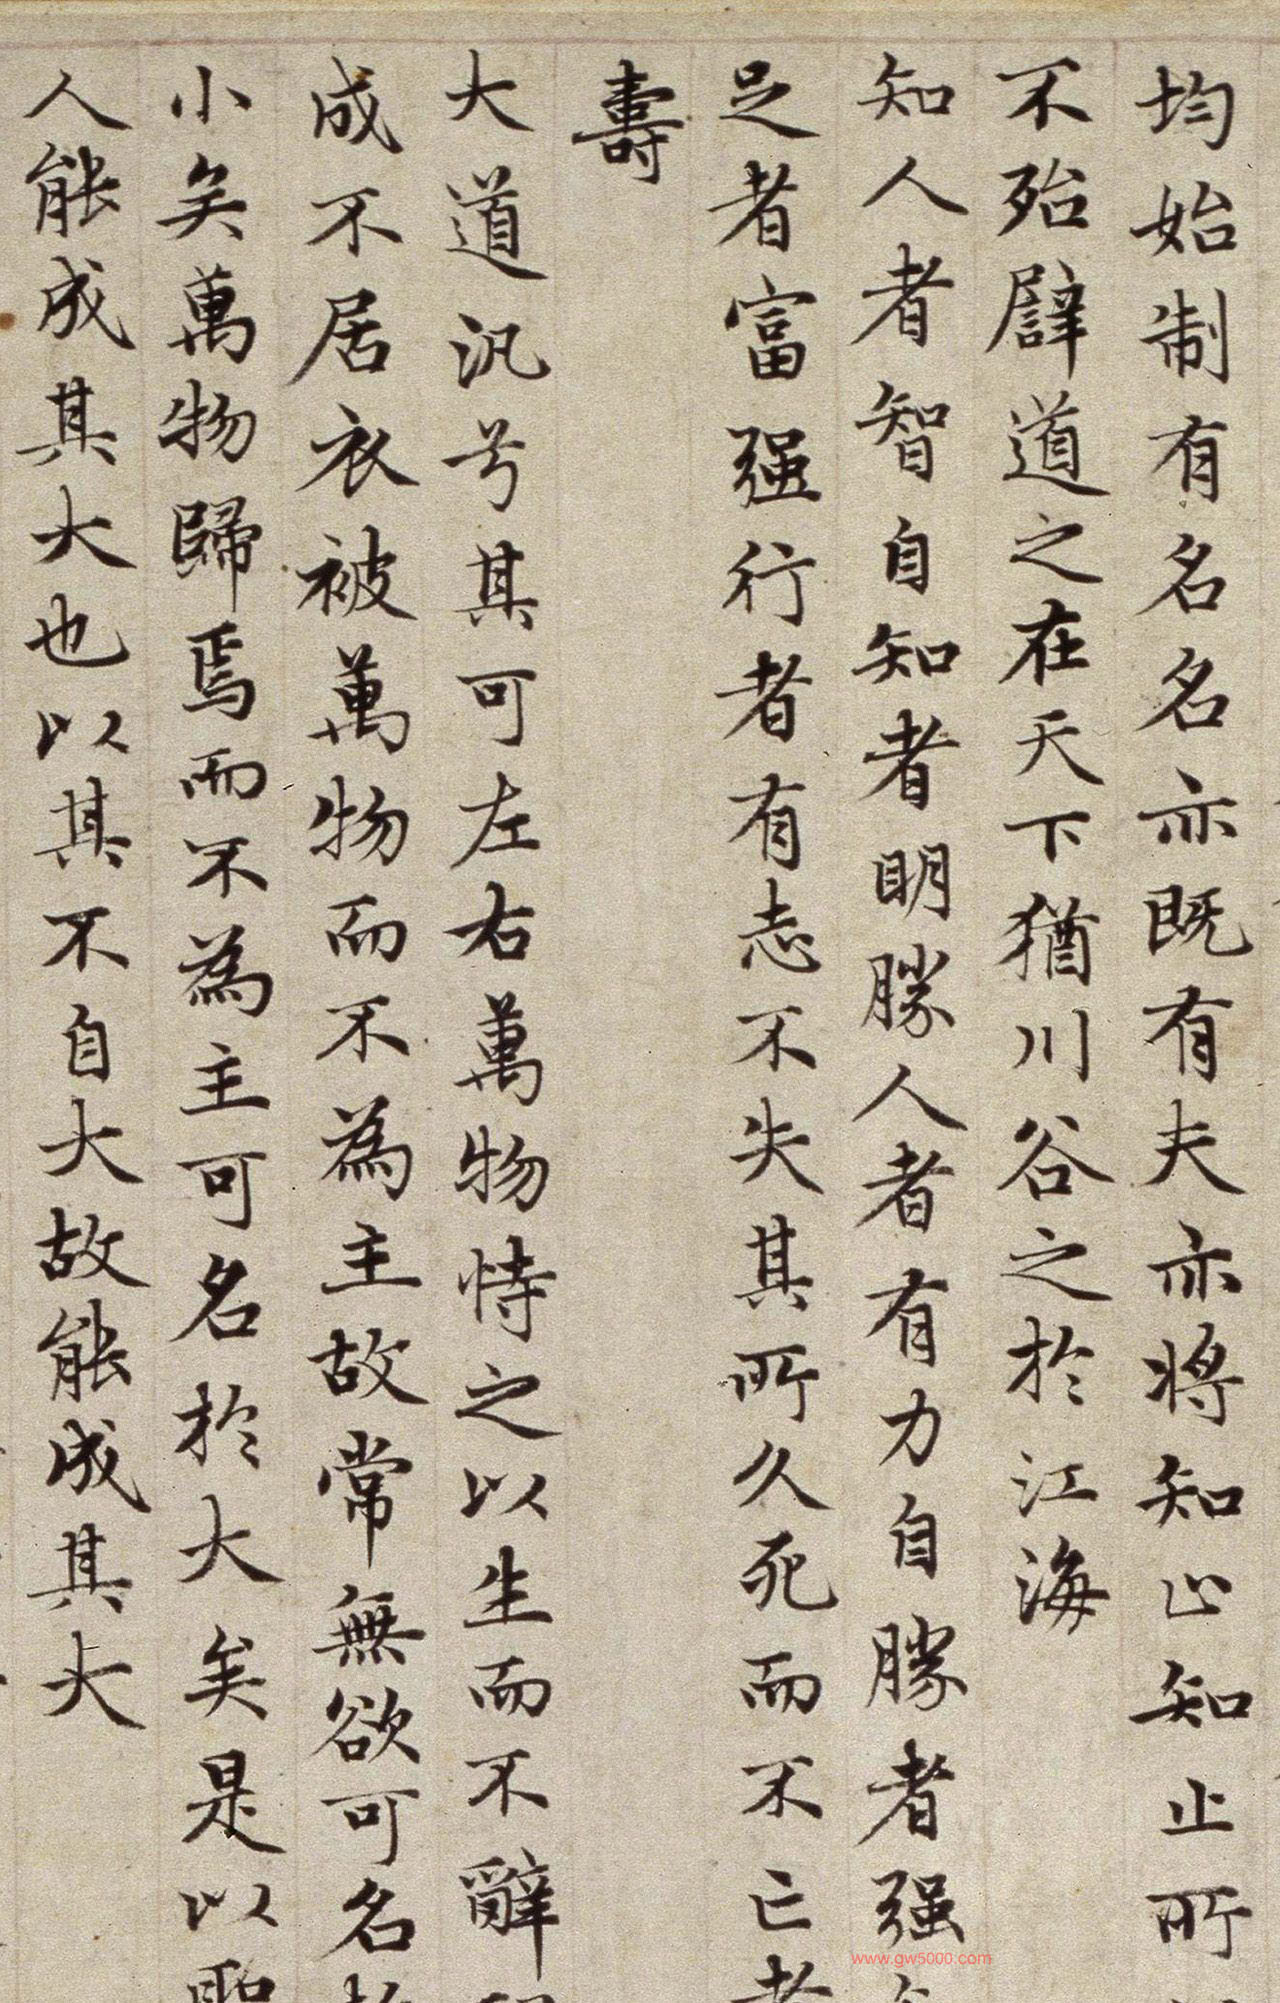 均始制有名名亦既有夫亦將知止知止所
不殆譬道之在天下猶川谷之於江海
知人者智自知者明勝人者有力自勝者强
足者富强行者有志不失其所久死而不亡者
壽
大道汎兮其可左右萬物恃之以生而不辭
成不居衣被萬物而不為主故常無欲可名
小矣萬物歸焉而不為主可名於大矣是以聖
人能成其大也以其不自大故能成其大
www.gw5000.com